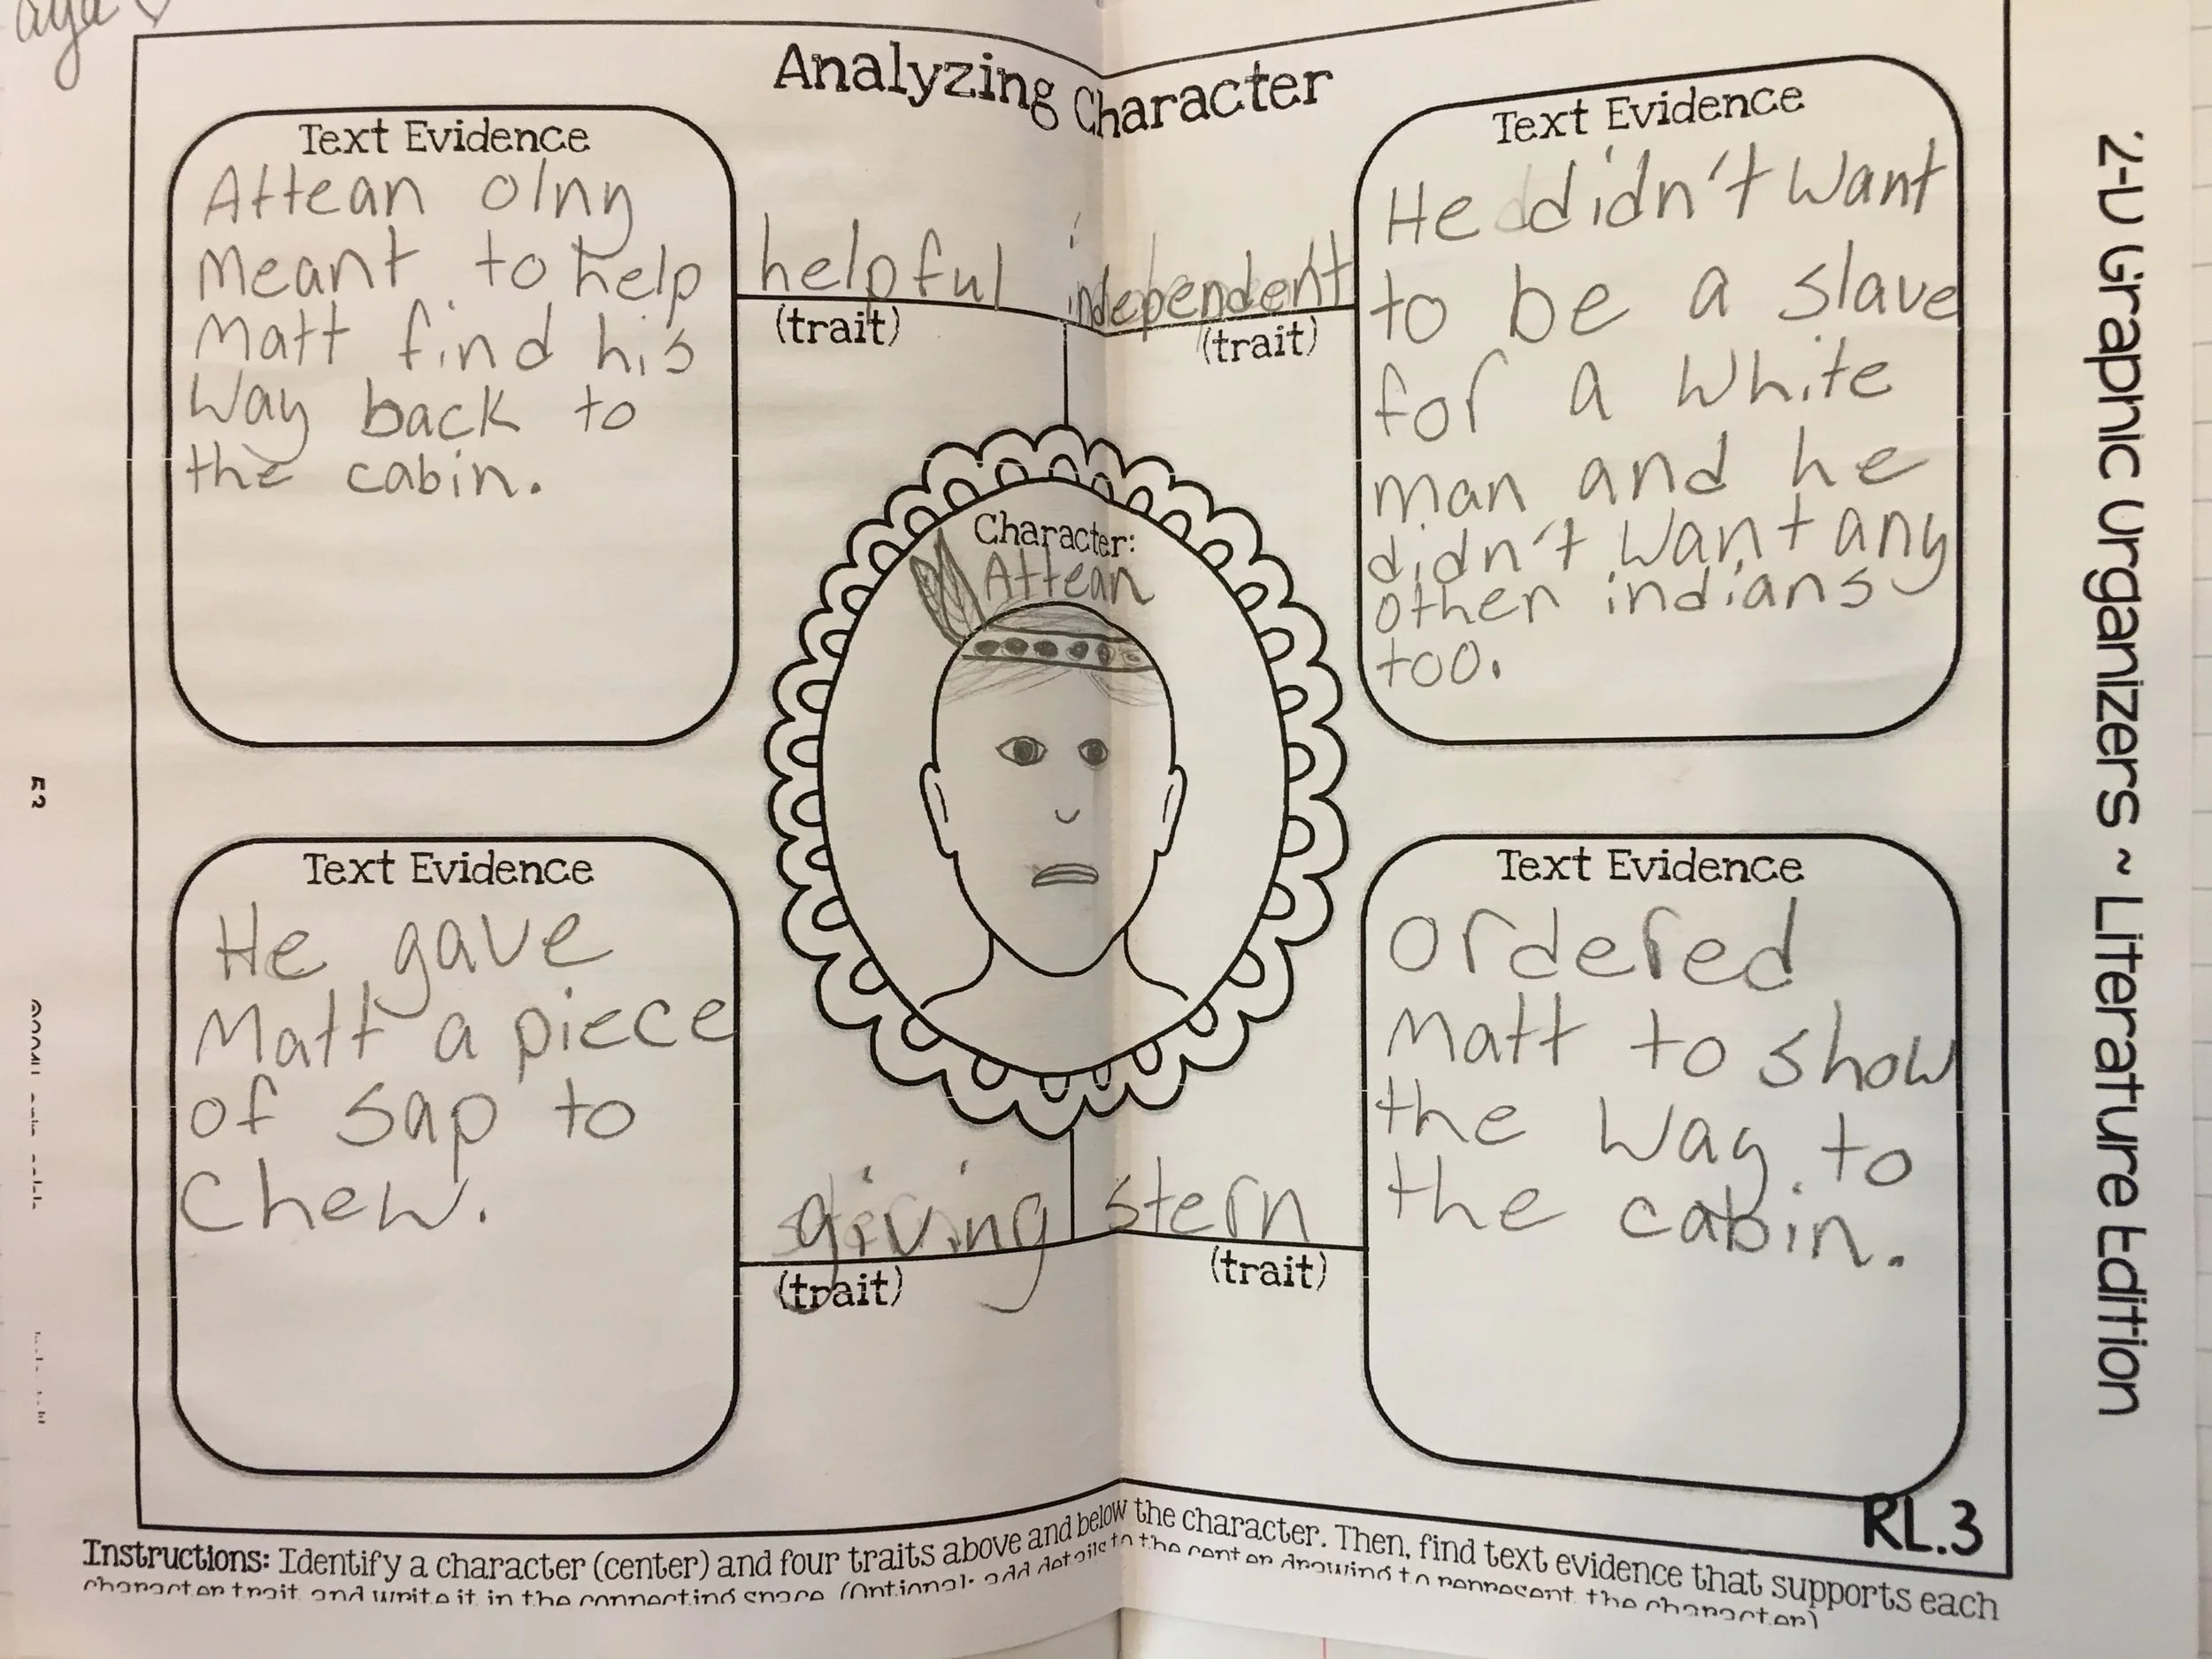 Analyzing Character
Text Evidence
Attean olny
meant to help
Matt find his
way back to
the cabin.
helpful
(trait)
independent
(trait)
Text Evidence
He didn't want
to be a slave
for a white
man and he
didn't want any
other indians
too.
Character:
Attean
Text Evidence
He gave
Matt a piece
of sap to
chew.
giving
(trait)
stern
(trait)
Text Evidence
ordered
Matt to show
the way to
the cabin.
RL.3
Instructions: Identify a character (center) and four traits above and below the character. Then, find text evidence that supports each
character trait and write it in the connecting space. (Optional: add details to the center drawing to represent the character)
2-D Graphic Organizers ~ Literature Edition
53